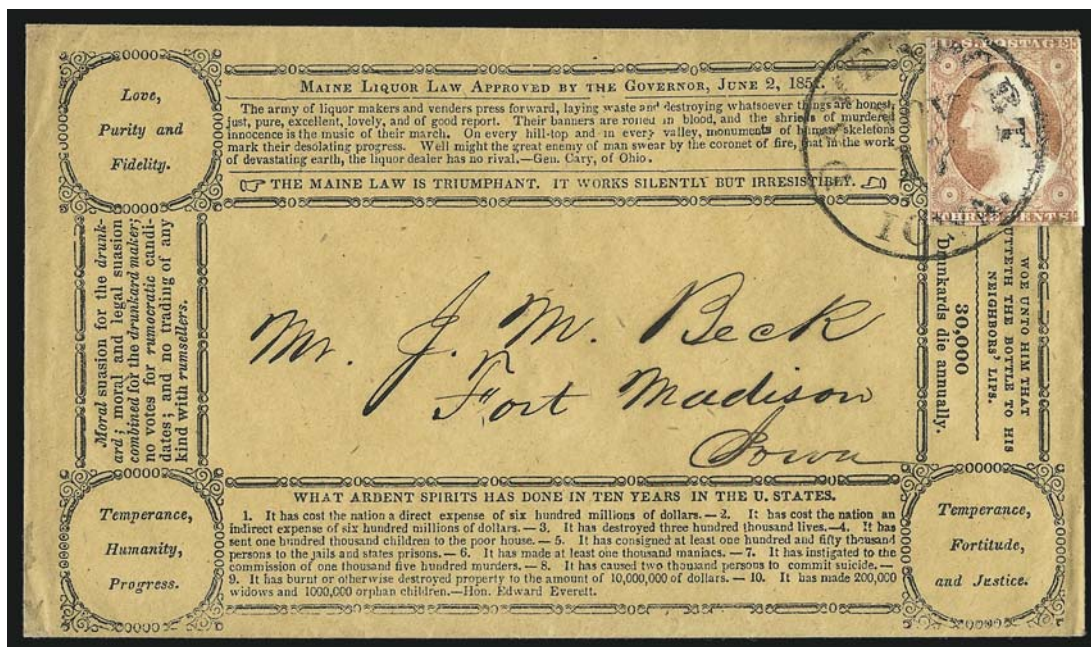 Love,
Purity and
Fidelity.
MAINE LIQUOR LAW APPROVED BY THE GOVERNOR, JUNE 2, 1851.
The army of liquor makers and venders press forward, laying waste and destroying whatsoever things are honest,
just, pure, excellent, lovely, and of good report. Their banners are rolled in blood, and the shrieks of murdered
innocence is the music of their march. On every hill-top and in every valley, monuments of human skeletons
mark their desolating progress. Well might the great enemy of man swear by the coronet of fire, that in the work
of devastating earth, the liquor dealer has no rival.—Gen. Cary, of Ohio.
THE MAINE LAW IS TRIUMPHANT. IT WORKS SILENTLY BUT IRRESISTIBLY.
U.S. POSTAGE
THREE CENTS
Moral suasion for the drunk-
ard; moral and legal suasion
combined for the drunkard maker;
no votes for rumocratic candi-
dates; and no trading of any
kind with rumsellers.
Mr. J. M. Beck
Fort Madison
Iowa
WOE UNTO HIM THAT
PUTTETH THE BOTTLE TO HIS
NEIGHBORS' LIPS.
30,000
Drunkards die annually.
Temperance,
Humanity,
Progress.
WHAT ARDENT SPIRITS HAS DONE IN TEN YEARS IN THE U. STATES.
1. It has cost the nation a direct expense of six hundred millions of dollars.—2. It has cost the nation an
indirect expense of six hundred millions of dollars.—3. It has destroyed three hundred thousand lives.—4. It has
sent one hundred thousand children to the poor house.—5. It has consigned at least one hundred and fifty thousand
persons to the jails and states prisons.—6. It has made at least one thousand maniacs.—7. It has instigated to the
commission of one thousand five hundred murders.—8. It has caused two thousand persons to commit suicide.—
9. It has burnt or otherwise destroyed property to the amount of 10,000,000 of dollars.—10. It has made 200,000
widows and 1000,000 orphan children.—Hon. Edward Everett.
Temperance,
Fortitude,
and Justice.